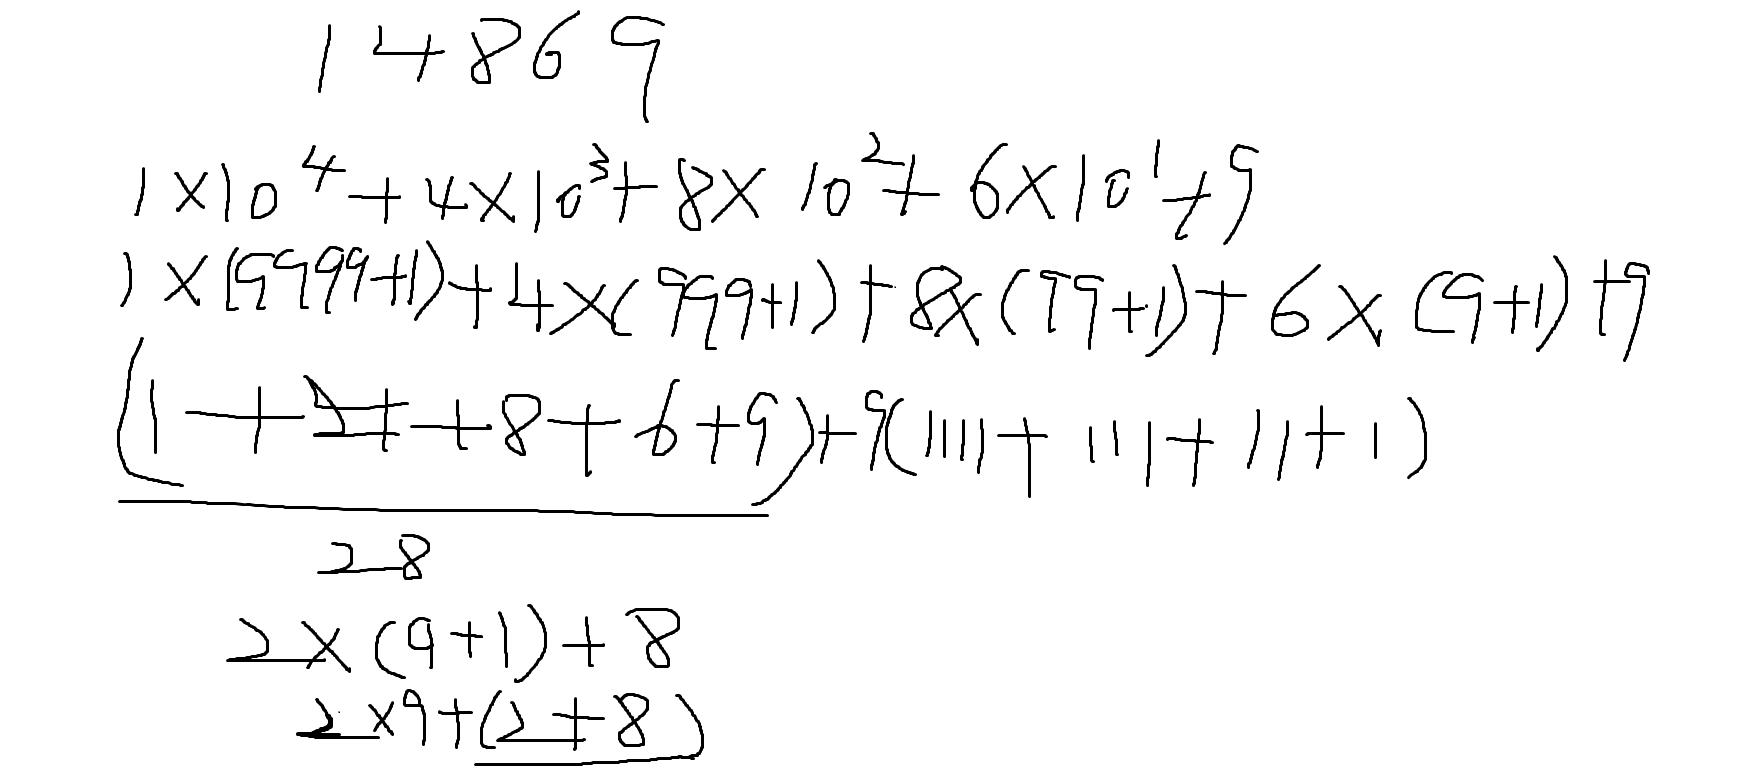 14869
1×10^4+4×10^3+8×10^2+6×10^1+9
1×(9999+1)+4×(999+1)+8×(99+1)+6×(9+1)+9
(1+4+8+6+9)+9(1111+111+11+1)
28
2×(9+1)+8
2×9+(2+8)